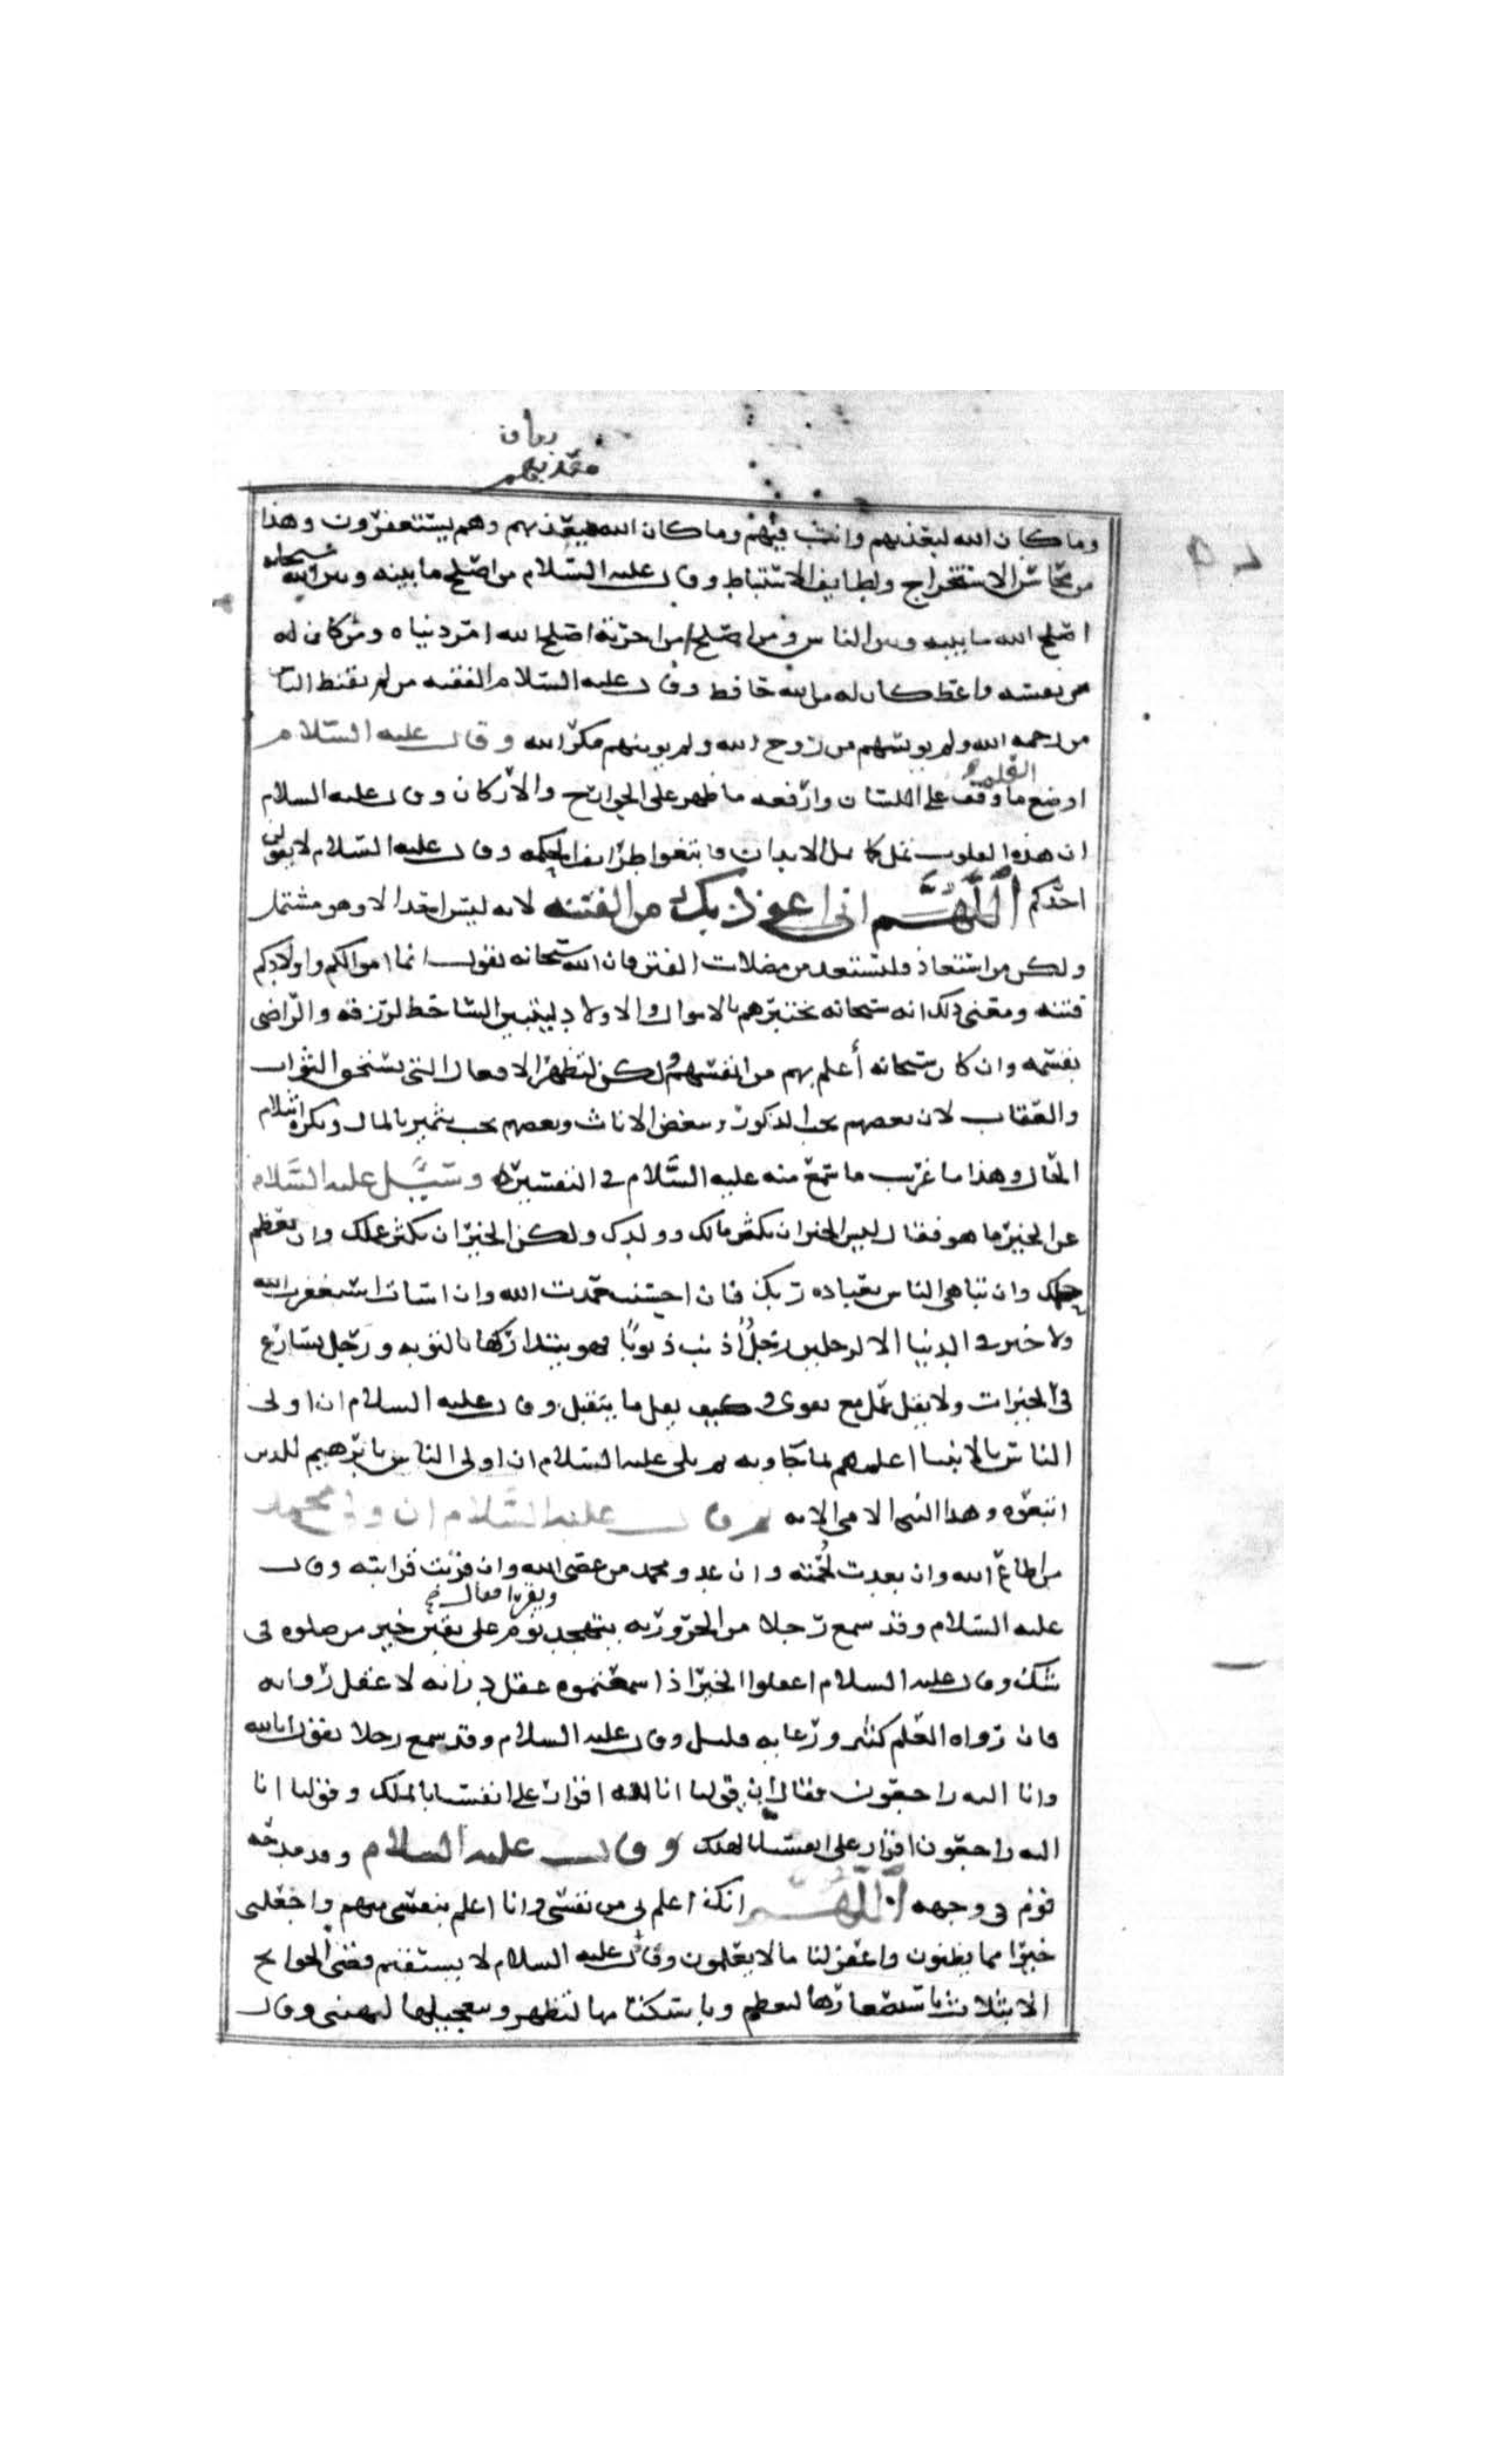 وما كان الله ليعذبهم وانت فيهم وما كان الله معذبهم وهم يستغفرون وهذا
من محاسن الاستخراج ولطايف الاستنباط وقال عليه السلام من اصلح ما بينه وبين الله سبحانه
اصلح الله ما بينه وبين الناس ومن اصلح امر اخرته اصلح الله امر دنياه ومن كان له
من نفسه واعظ كان له من الله حافظ وقال عليه السلام الفقيه من لم يقنط الناس
من رحمه الله ولم يويسهم من روح الله ولم يومنهم مكر الله وقال عليه السلام
اوضع العلم ما وقف على اللسان وارفعه ما ظهر على الجوارح والاركان وقال عليه السلام
ان هذه القلوب تمل كما تمل الابدان فابتغوا طرايف الحكمه وقال عليه السلام لا يقولن
احدكم اللهم اني اعوذ بك من الفتنه لانه ليس احد الا وهو مشتمل
ولكن من استعاذ فليستعذ من مضلات الفتن فان الله سبحانه يقول انما اموالكم واولادكم
فتنه ومعنى ذلك انه سبحانه يختبرهم بالاموال والاولاد ليتبين الساخط لرزقه والراضى
بقسمه وان كان سبحانه أعلم بهم من انفسهم ولكن لتظهر الافعال التي يستحق الثواب
والعقاب لان بعضهم يحب الذكور ويبغض الاناث وبعضهم يحب تثمير المال ويكره انثلام
الحال وهذا ما غريب ما سمع منه عليه السلام في التفسير وسئل عليه السلام
عن الخير ما هو فقال ليس الخير ان يكثر مالك وولدك ولكن الخير ان يكثر علمك وان يعظم
حلمك وان تباهى الناس بعباده ربك فان احسنت حمدت الله وان اسات استغفرت الله
ولا خير في الدنيا الا لرجلين رجل أذنب ذنوبا فهو يتداركها بالتوبه ورجل يسارع
في الخيرات ولا يقل عمل مع تقوى وكيف يقل ما يتقبل وقال عليه السلام ان اولى
الناس بالانبيا اعلمهم بما جاوا به ثم تلى عليه السلام ان اولى الناس بابرهيم للذين
اتبعوه وهذا النبي الامى الايه ثم قال عليه السلام ان ولي محمد
من اطاع الله وان بعدت لحمته وان عدو محمد من عصى الله وان قربت قرابته وقال
عليه السلام وقد سمع رجلا من الحروريه يتهجد ويقرا فقال نوم على يقين خير من صلوه في
شك وقال عليه السلام اعقلوا الخبر اذا سمعتموه عقل درايه لا عقل روايه
فان رواه العلم كثير ورعاته قليل وقال عليه السلام وقد سمع رجلا يقول انا لله
وانا اليه راجعون فقال ان قولنا انا لله اقرار على انفسنا بالملك وقولنا انا
اليه راجعون اقرار على انفسنا بالهلك وقال عليه السلام وقد مدحه
قوم في وجهه اللهم انك اعلم بي من نفسي وانا اعلم بنفسي منهم واجعلني
خيرا مما يظنون واغفر لنا ما لا يعلمون وقال عليه السلام لا يستقيم قضى الحوايج
الا بثلاث باستصغارها لتعظم وباستكتامها لتظهر وبتعجيلها لتهنى وقال